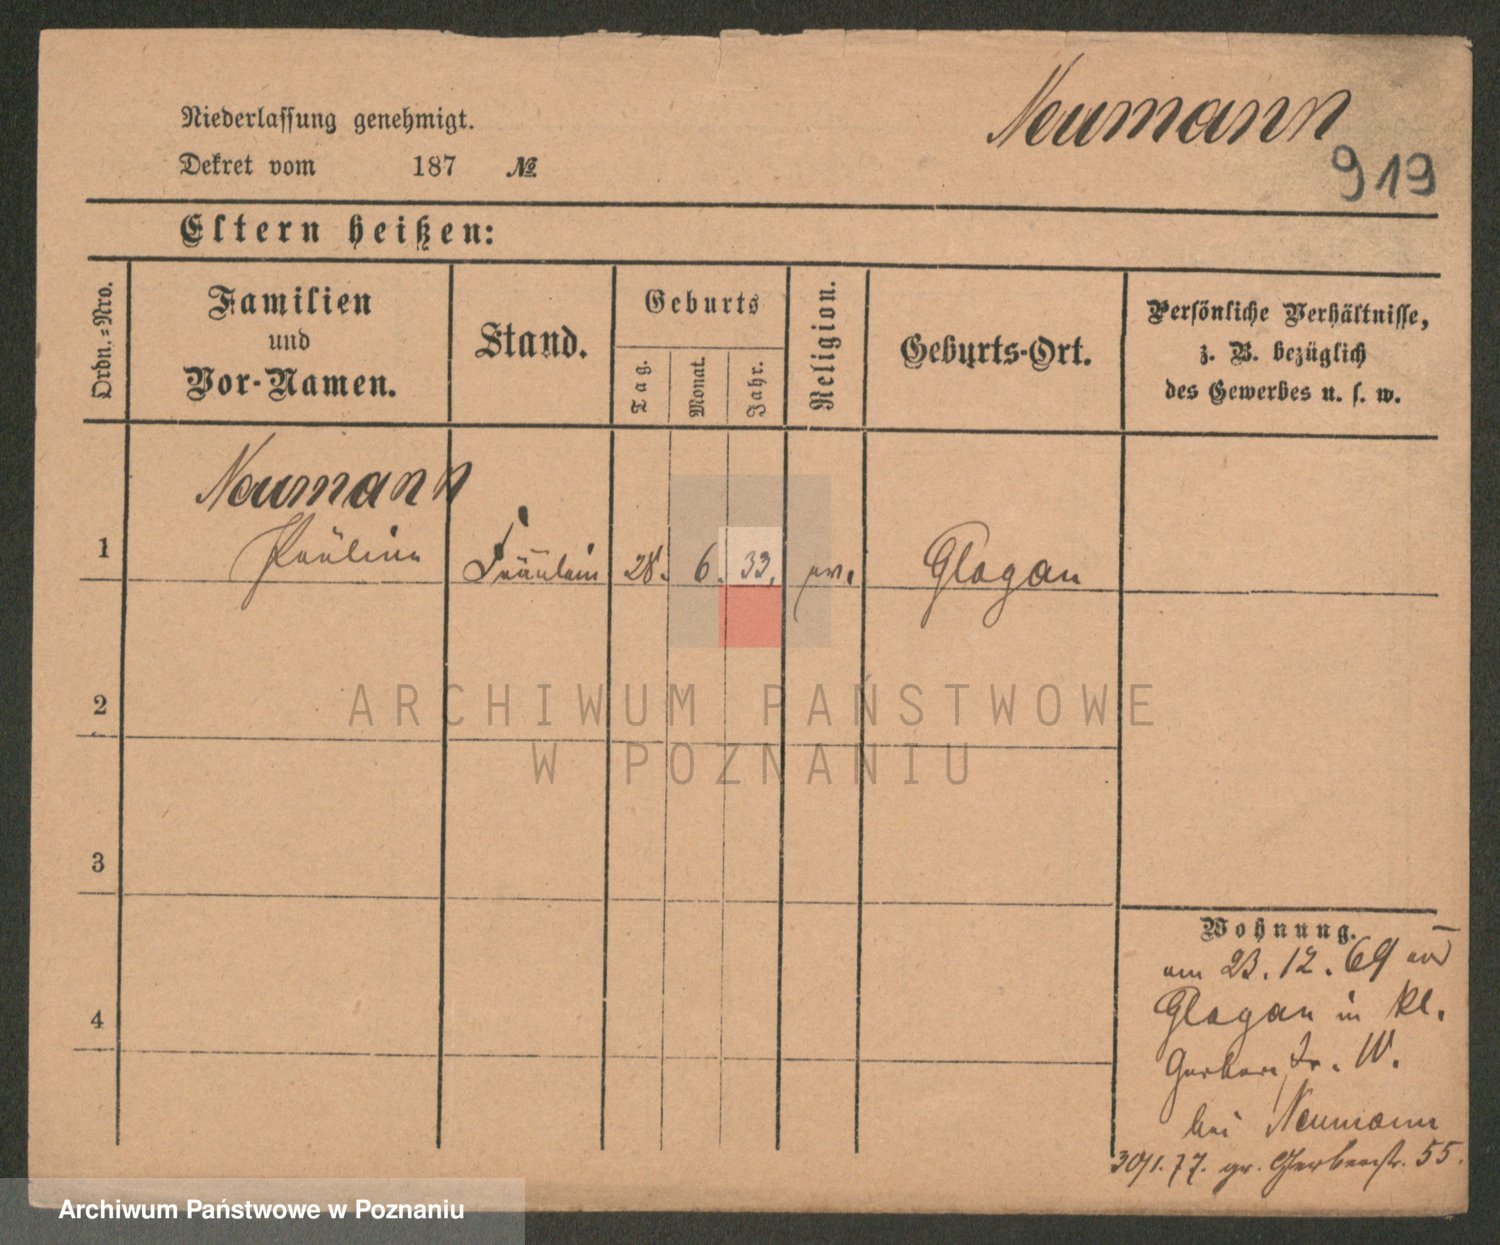 Neumann
919
Niederlassung genehmigt.
Dekret vom 187 №
Eltern heißen:
Ordn.=Nro.
Familien
und
Vor-Namen.
Stand.
Geburts
Tag.
Monat.
Jahr.
Religion.
Geburts-Ort.
Persönliche Verhältnisse,
z. B. bezüglich
des Gewerbes u. s. w.
Neumann
1 Pauline Fräulein 28. 6. 33. ev. Glogau
2
3
4
Wohnung.
am 23.12.69 aus
Glogau in kl.
Gerberstr.
bei Neumann
30/1.77. gr. Gerberstr. 55.
ARCHIWUM PAŃSTWOWE
W POZNANIU
Archiwum Państwowe w Poznaniu